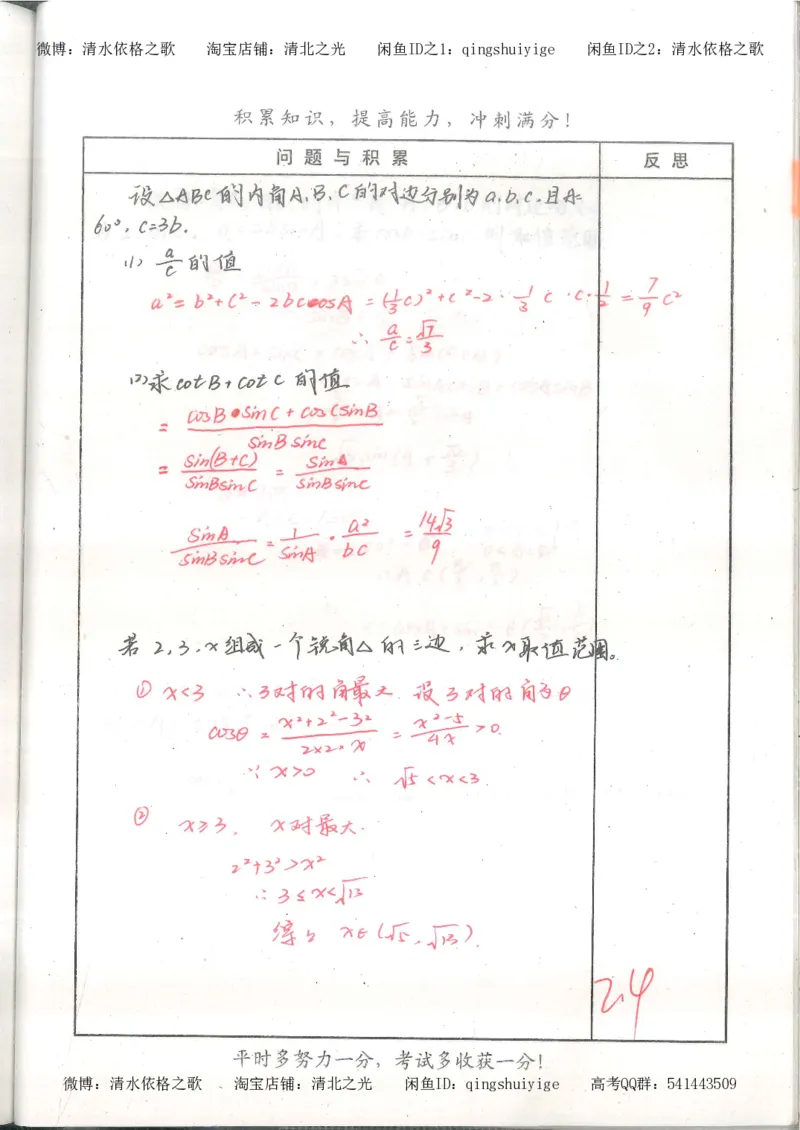 微博：清水依格之歌 淘宝店铺：清北之光 闲鱼ID之1：qingshuiyige 闲鱼ID之2：清水依格之歌
积累知识，提高能力，冲刺满分！
问题与积累 反思
设△ABC的内角A、B、C的对边分别为a.b.c.且A=
60°，c=3b.
(1) a/c 的值
a²=b²+c²-2bccosA=(1/3c)²+c²-2·1/3c·c·1/2=7/9c²
∴ a/c=√7/3
(2)求cotB+cotC的值
= (cosB·sinC+cosCsinB)/(sinBsinC)
= sin(B+C)/(sinBsinC) = sinA/(sinBsinC)
sinA/(sinBsinC) = 1/sinA · a²/bc = 14√3/9
若2,3,x组成一个锐角△的三边，求x取值范围。
① x<3 ∴3对的角最大.设3对的角为θ
cosθ = (x²+2²-3²)/(2×2×x) = (x²-5)/4x >0.
∵ x>0 ∴ √5<x<3.
② x≥3, x对最大.
2²+3²>x²
∴ 3≤x<√13
综上 x∈(√5,√13).
24
平时多努力一分，考试多收获一分！
微博：清水依格之歌 、淘宝店铺：清北之光 闲鱼ID：qingshuiyige 高考QQ群：541443509